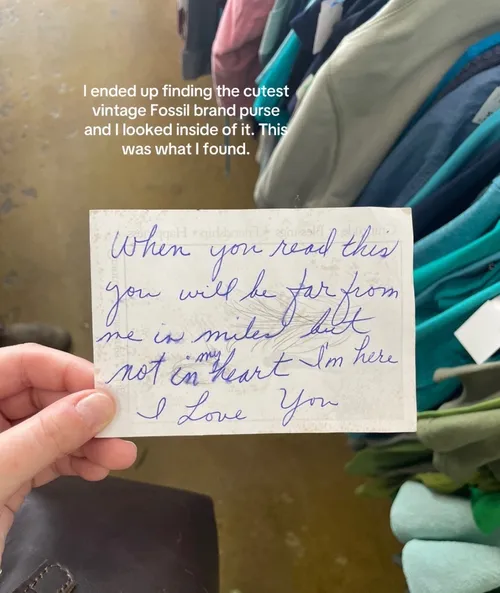 I ended up finding the cutest
vintage Fossil brand purse
and I looked inside of it. This
was what I found.
When you read this
you will be far from
me in miles but
not in my heart I'm here
I Love You